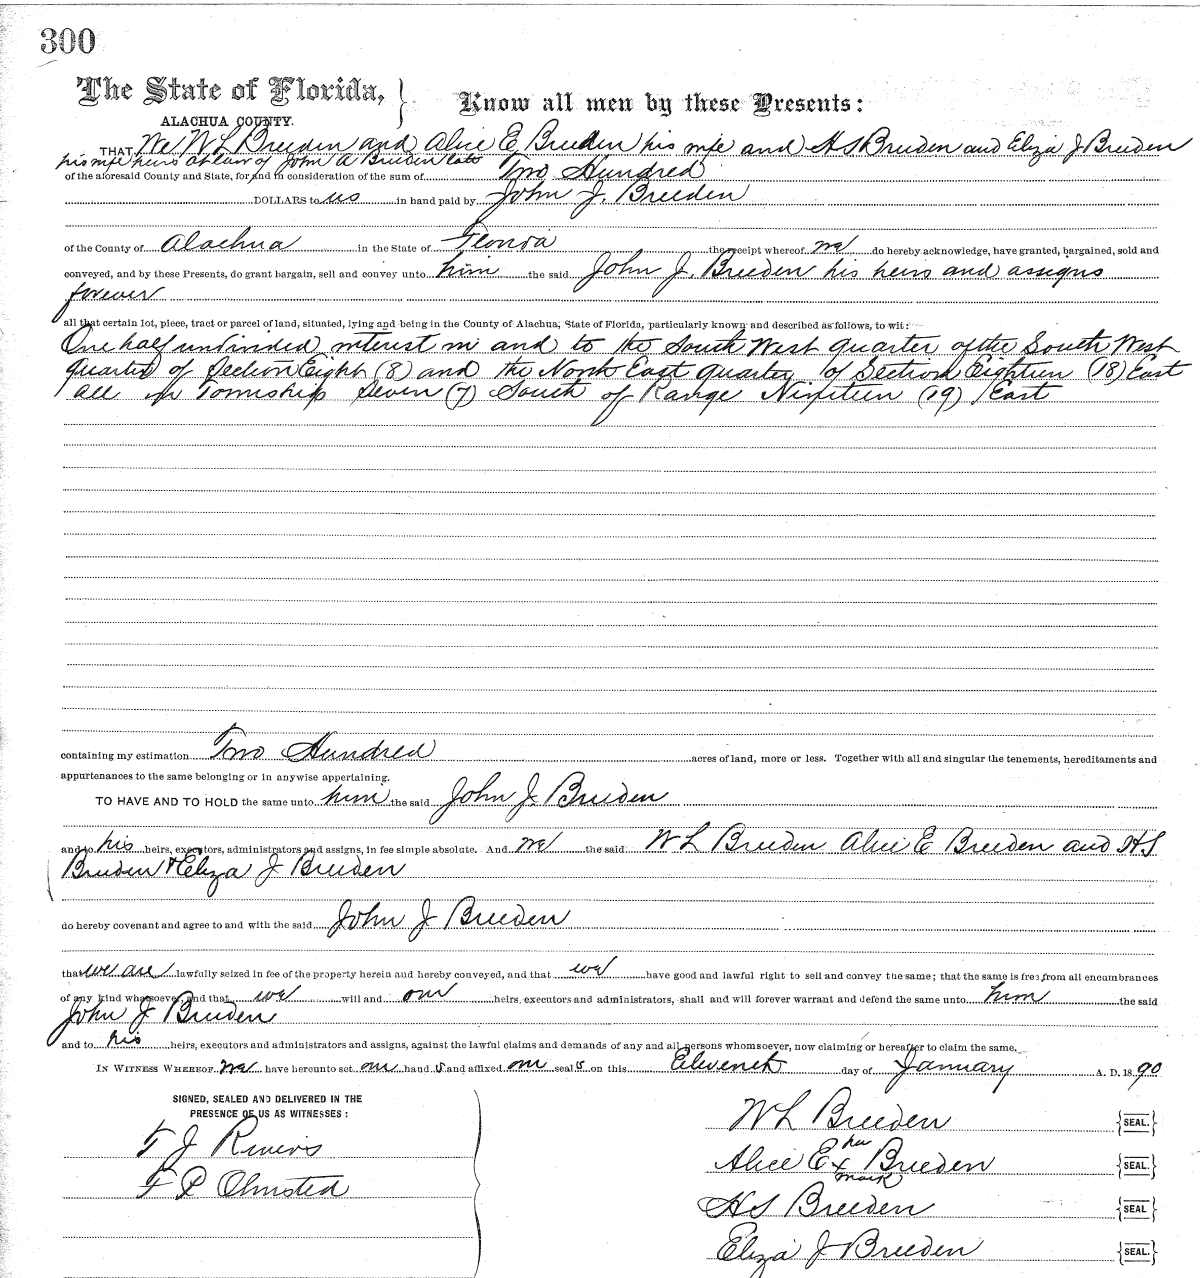 300
The State of Florida,
Know all men by these Presents:
ALACHUA COUNTY.
THAT We W L Breeden and Alice E. Breeden his wife and H S Breeden and Eliza J Breeden
his wife heirs at law of John A Breeden late
of the aforesaid County and State, for and in consideration of the sum of Two Hundred
DOLLARS to us in hand paid by John J. Breeden
of the County of Alachua in the State of Florida the receipt whereof we do hereby acknowledge, have granted, bargained, sold and
conveyed, and by these Presents, do grant bargain, sell and convey unto him the said John J. Breeden his heirs and assigns
forever
all that certain lot, piece, tract or parcel of land, situated, lying and being in the County of Alachua, State of Florida, particularly known and described as follows, to wit:
One half undivided interest in and to the South West quarter of the South West
quarter of Section Eight (8) and the North East quarter of Section Eighteen (18) East
all in Township Seven (7) South of Range Nineteen (19) East
containing my estimation Two Hundred acres of land, more or less. Together with all and singular the tenements, hereditaments and
appurtenances to the same belonging or in anywise appertaining.
TO HAVE AND TO HOLD the same unto him the said John J Breeden
and to his heirs, executors, administrators and assigns, in fee simple absolute. And we the said W L Breeden Alice E Breeden and H S
Breeden & Eliza J Breeden
do hereby covenant and agree to and with the said John J Breeden
that we are lawfully seized in fee of the property herein and hereby conveyed, and that we have good and lawful right to sell and convey the same; that the same is free from all encumbrances
of any kind whatsoever, and that we will and our heirs, executors and administrators, shall and will forever warrant and defend the same unto him the said
John J Breeden
and to his heirs, executors and administrators and assigns, against the lawful claims and demands of any and all persons whomsoever, now claiming or hereafter to claim the same.
IN WITNESS WHEREOF we have hereunto set our hand s and affixed our seal s on this Eleventh day of January A. D. 18 90
SIGNED, SEALED AND DELIVERED IN THE
PRESENCE OF US AS WITNESSES:
W L Breeden SEAL.
T J Rivers
her
Alice E x Breeden SEAL.
mark
F P Olmsted
H S Breeden SEAL
Eliza J Breeden SEAL.